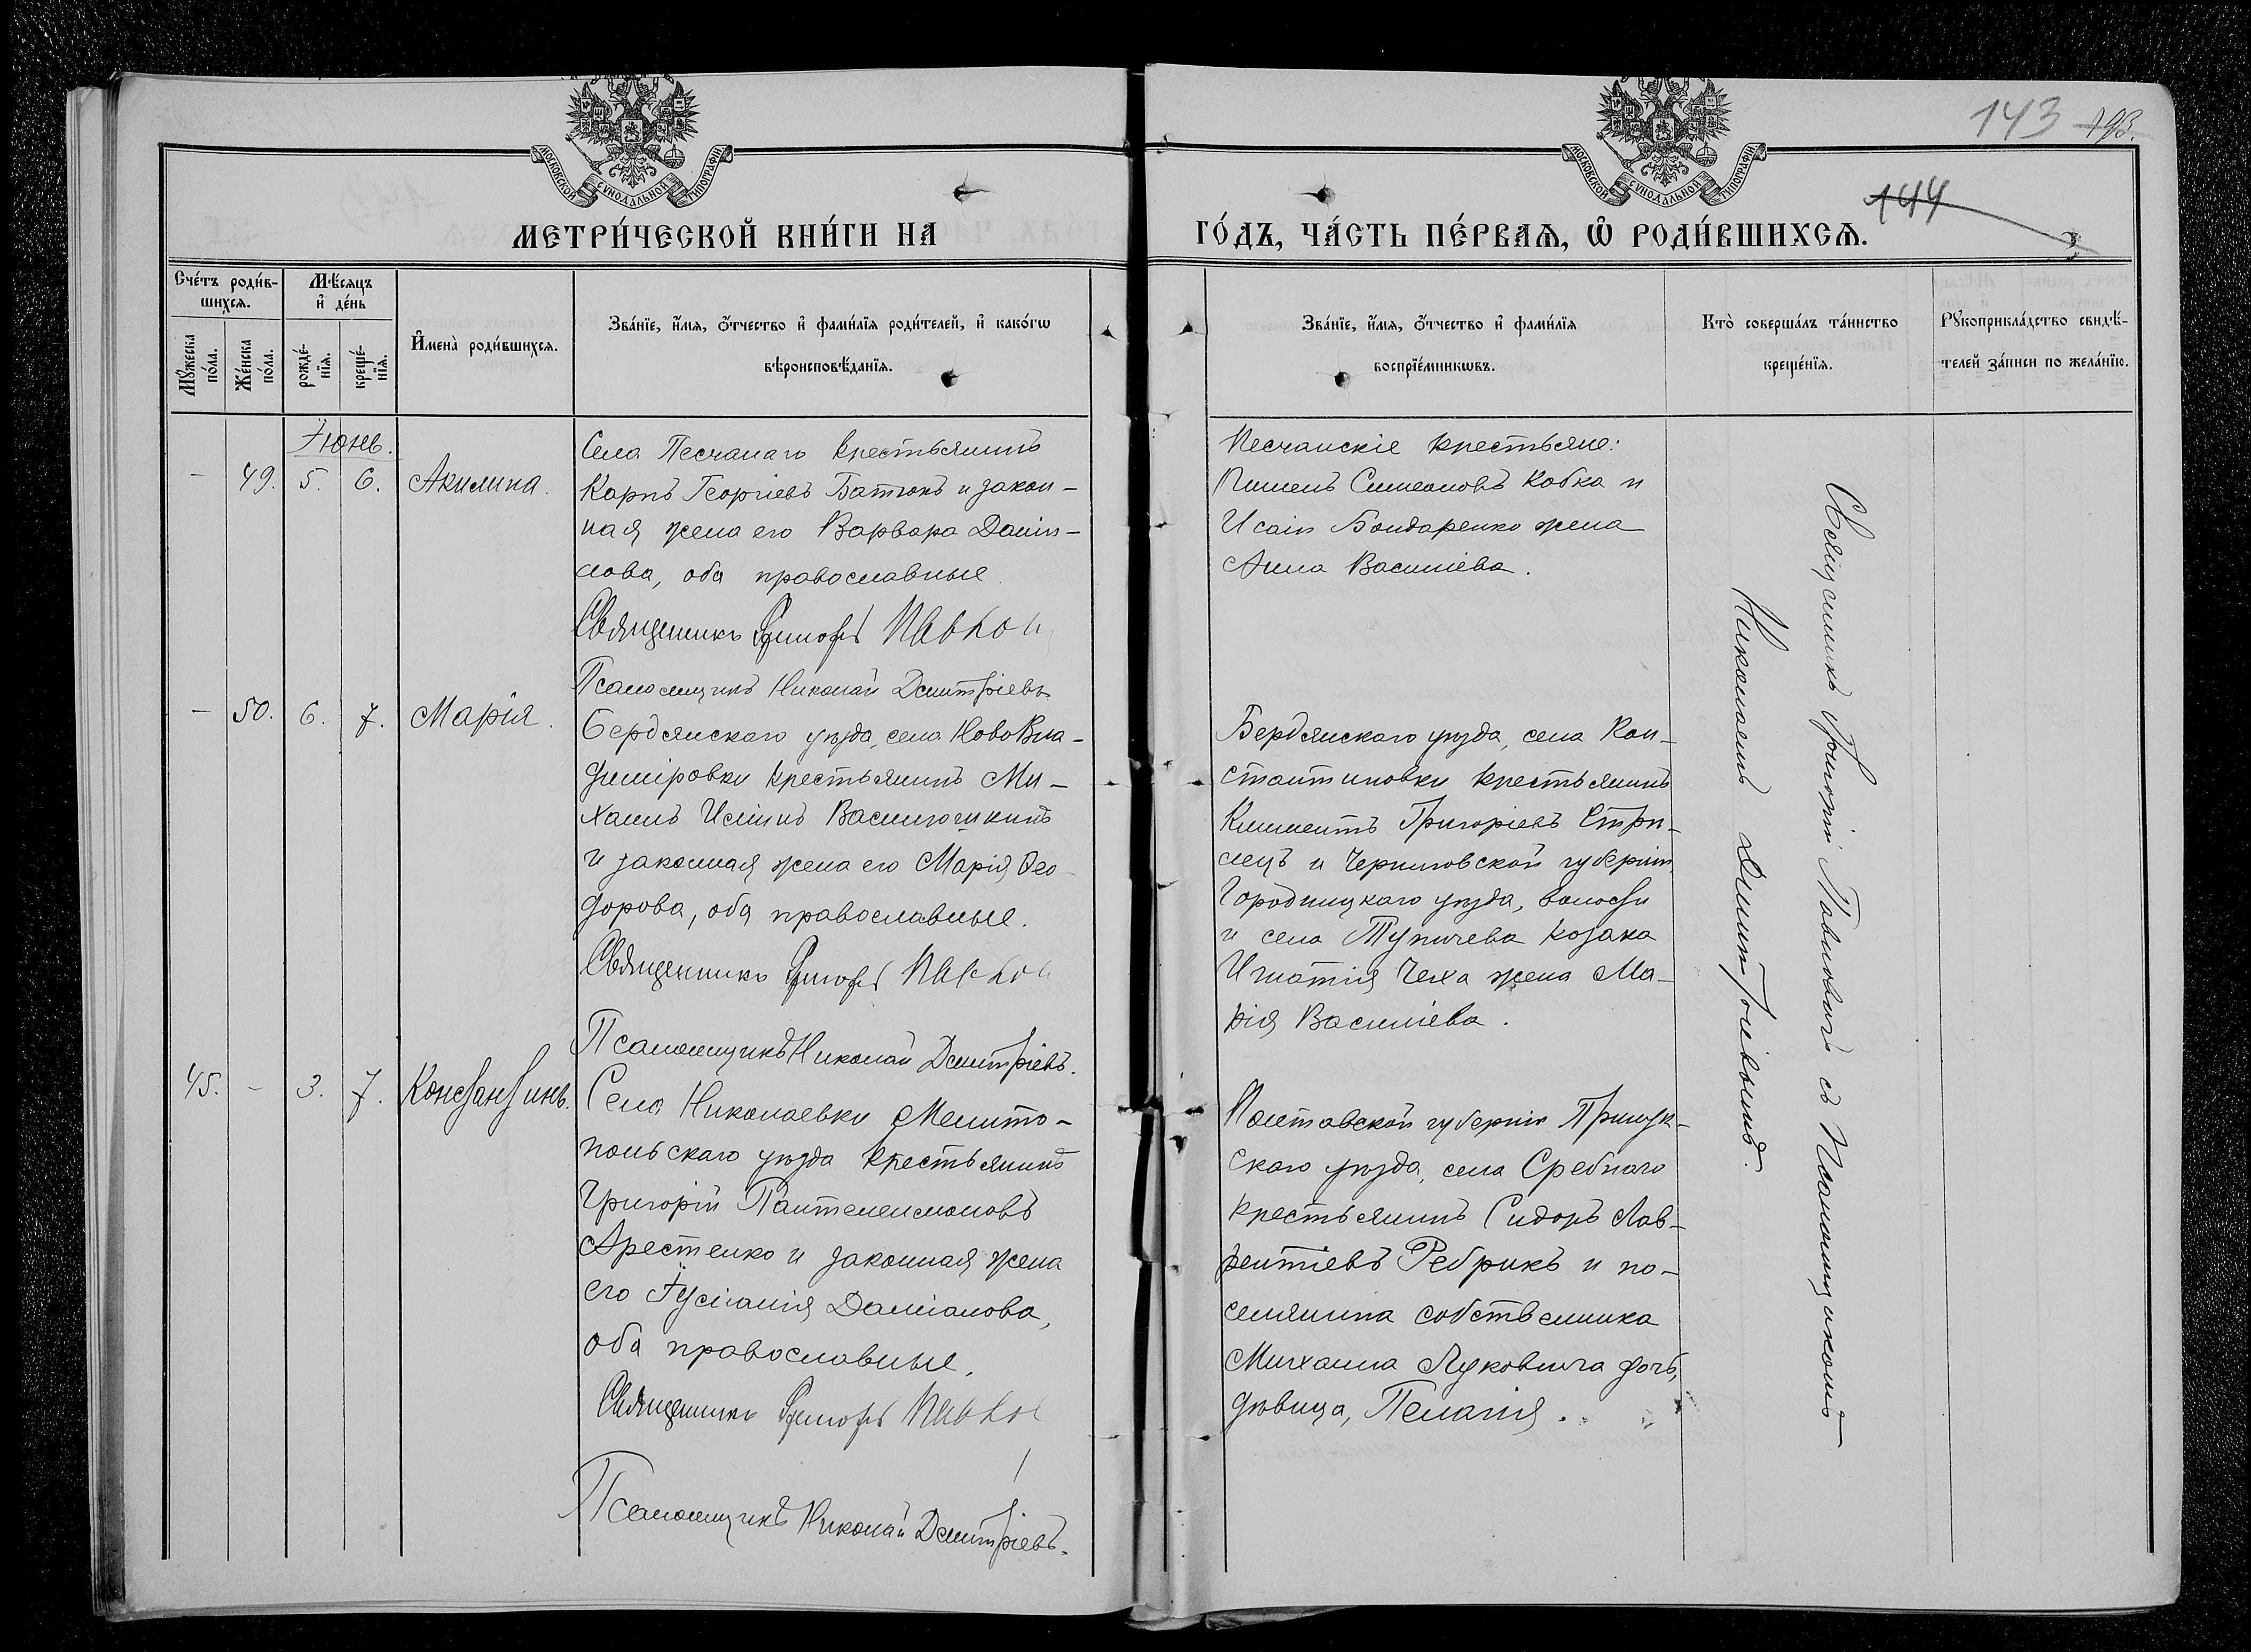 143 193.
144
МОСКОВСКОЙ СѴНОДАЛЬНОЙ ТИПОГРАФІИ
МЕТРИ́ЧЕСКОЙ КНИ́ГИ НА
МОСКОВСКОЙ СѴНОДАЛЬНОЙ ТИПОГРАФІИ
ГО́ДЪ, ЧА́СТЬ ПЕ́РВАѦ, Ѡ РОДИ́ВШИХСѦ.
Сче́тъ роди́в-
шихсѧ.
Мꙋ́жеска
по́ла.
Же́нска
по́ла.
Мѣ́сяцъ
и҆ де́нь
рожде́-
нїѧ.
креще́-
нїѧ.
И҆мена̀ роди́вшихсѧ.
Зва́нїе, и҆́мѧ, ѻ҆́тчество и҆ фами́лїѧ роди́телей, и҆ како́гѡ
вѣроисповѣ́данїѧ.
Зва́нїе, и҆́мѧ, ѻ҆́тчество и҆ фами́лїѧ
воспрїе́мникѡвъ.
Кто̀ соверша́лъ та́инство
креще́нїѧ.
Рꙋкоприкла́дство свидѣ́-
телей за́писи по жела́нїю.
Іюнь.
– 49. 5. 6. Акилина.
Села Песчанаго крестьянинъ
Карпъ Георгіевъ Батюкъ и закон-
ная жена его Варвара Даніи-
лова, оба православные.
Священникъ Григорій Павло
Псаломщикъ Николай Димитріевъ
Песчанскіе крестьяне:
Пименъ Симеоновъ Кобка и
Исаіи Бондаренко жена
Анна Василіева.
– 50. 6. 7. Марія.
Бердянскаго уѣзда, села НовоВла-
диміровки крестьянинъ Ми-
хаилъ Исіинъ
и законная жена его Марія Ѳео-
дорова, оба православные.
Священникъ Григорій Павло
Псаломщикъ Николай Димитріевъ.
Бердянскаго уѣзда, села Кон-
стантиновки крестьянинъ
Климентъ Григоріевъ Стри-
лецъ и Черниговской губерніи,
Городницкаго уѣзда, волости
и села Тупичева козака
Игнатія Чеха жена Ма-
рія Василіева.
45. – 3. 7. Константинъ.
Села Николаевки Мелито-
польскаго уѣзда крестьянинъ
Григорій Пантелеимоновъ
Арестенко и законная жена
его Іустинія Даміанова,
оба православные.
Священникъ Григорій Павло
Псаломщикъ Николай Димитріевъ.
Полтавской губерніи Прилук-
скаго уѣзда, села Сребнаго
крестьянинъ Сидоръ Лав-
рентіевъ Ребрикъ и по-
селянина собственника
Михаила Луковича дочь,
дѣвица, Пелагія.
Священникъ Григорій Павловичъ съ Псаломщикомъ
Николаемъ Димитріевымъ.